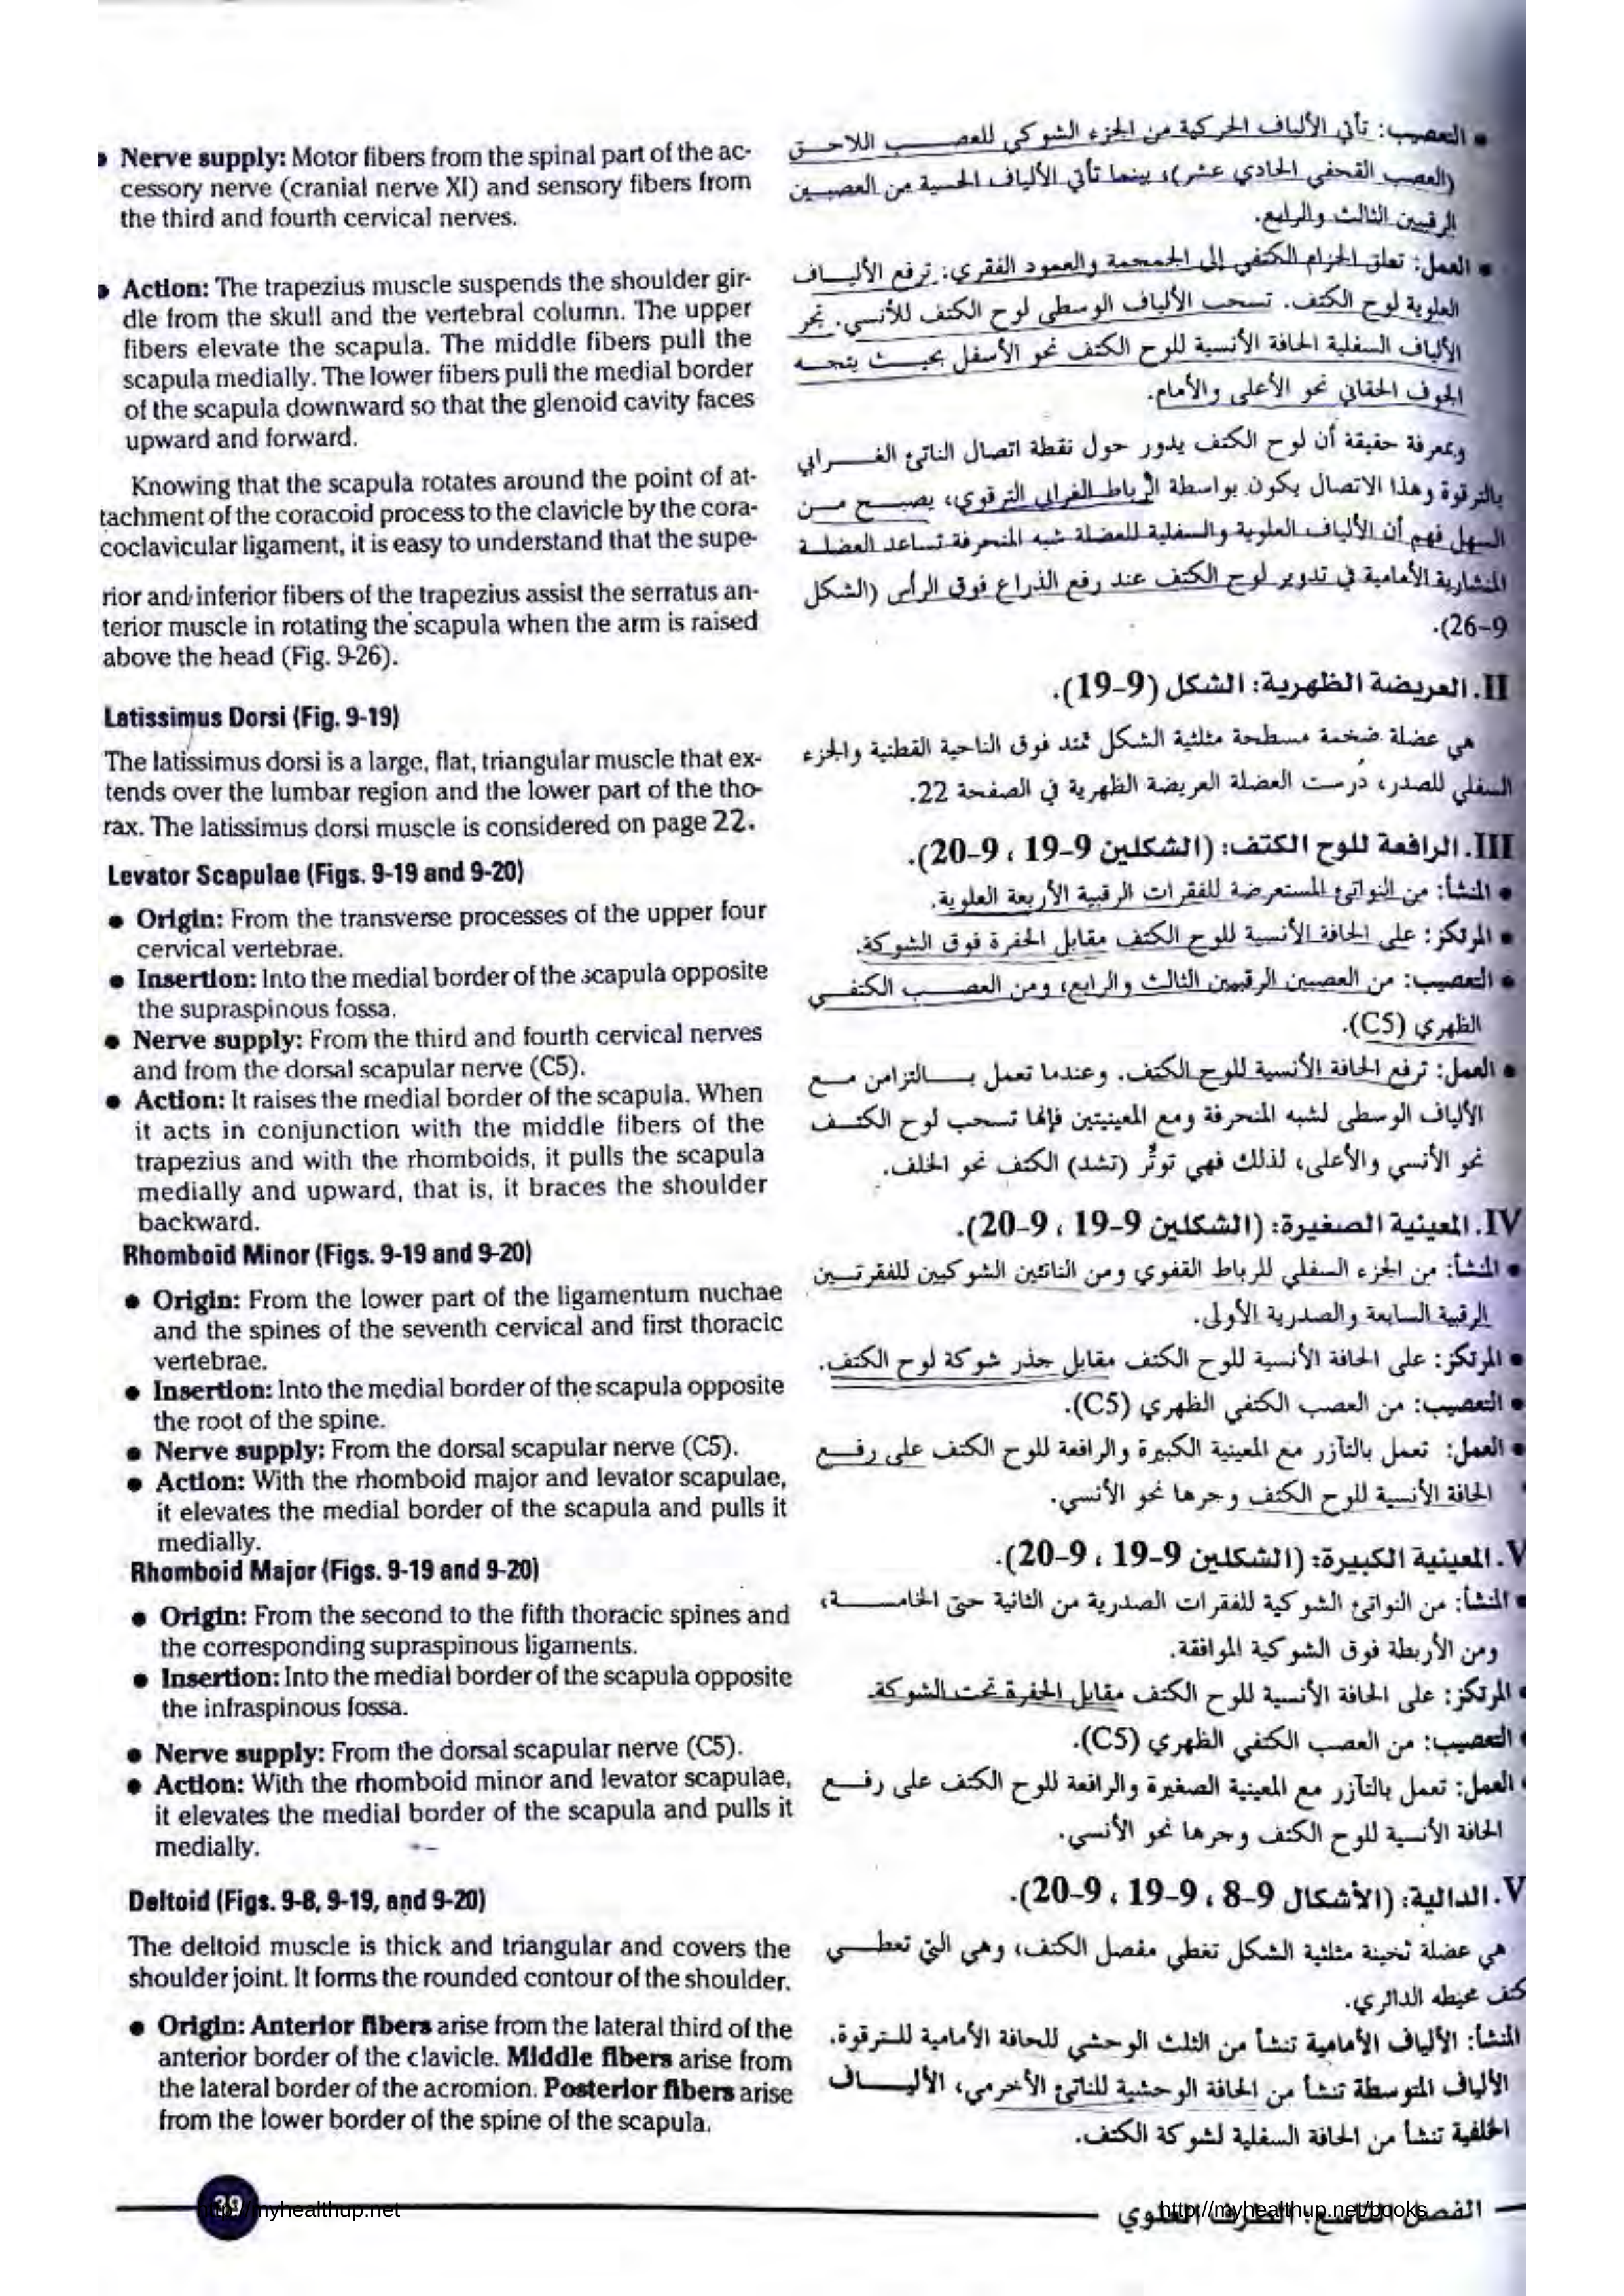 Nerve supply: Motor fibers from the spinal part of the ac-
cessory nerve (cranial nerve XI) and sensory fibers from
the third and fourth cervical nerves.
Action: The trapezius muscle suspends the shoulder gir-
dle from the skull and the vertebral column. The upper
fibers elevate the scapula. The middle fibers pull the
scapula medially. The lower fibers pull the medial border
of the scapula downward so that the glenoid cavity faces
upward and forward.
Knowing that the scapula rotates around the point of at-
tachment of the coracoid process to the clavicle by the cora-
coclavicular ligament, it is easy to understand that the supe-
rior and inferior fibers of the trapezius assist the serratus an-
terior muscle in rotating the scapula when the arm is raised
above the head (Fig. 9-26).
Latissimus Dorsi (Fig. 9-19)
The latissimus dorsi is a large, flat, triangular muscle that ex-
tends over the lumbar region and the lower part of the tho-
rax. The latissimus dorsi muscle is considered on page 22.
Levator Scapulae (Figs. 9-19 and 9-20)
● Origin: From the transverse processes of the upper four
cervical vertebrae.
● Insertion: Into the medial border of the scapula opposite
the supraspinous fossa.
● Nerve supply: From the third and fourth cervical nerves
and from the dorsal scapular nerve (C5).
● Action: It raises the medial border of the scapula. When
it acts in conjunction with the middle fibers of the
trapezius and with the rhomboids, it pulls the scapula
medially and upward, that is, it braces the shoulder
backward.
Rhomboid Minor (Figs. 9-19 and 9-20)
● Origin: From the lower part of the ligamentum nuchae
and the spines of the seventh cervical and first thoracic
vertebrae.
● Insertion: Into the medial border of the scapula opposite
the root of the spine.
● Nerve supply: From the dorsal scapular nerve (C5).
● Action: With the rhomboid major and levator scapulae,
it elevates the medial border of the scapula and pulls it
medially.
Rhomboid Major (Figs. 9-19 and 9-20)
● Origin: From the second to the fifth thoracic spines and
the corresponding supraspinous ligaments.
● Insertion: Into the medial border of the scapula opposite
the infraspinous fossa.
● Nerve supply: From the dorsal scapular nerve (C5).
● Action: With the rhomboid minor and levator scapulae,
it elevates the medial border of the scapula and pulls it
medially.
Deltoid (Figs. 9-8, 9-19, and 9-20)
The deltoid muscle is thick and triangular and covers the
shoulder joint. It forms the rounded contour of the shoulder.
● Origin: Anterior fibers arise from the lateral third of the
anterior border of the clavicle. Middle fibers arise from
the lateral border of the acromion. Posterior fibers arise
from the lower border of the spine of the scapula.
● التعصيب: تأتي الألياف الحركية من الجزء الشوكي للعصب اللاحق
(العصب القحفي الحادي عشر)، بينما تأتي الألياف الحسية من العصبين
الرقبيين الثالث والرابع.
● العمل: تعلق الحزام الكتفي إلى الجمجمة والعمود الفقري: ترفع الألياف
العلوية لوح الكتف. تسحب الألياف الوسطى لوح الكتف للأنسي. تجر
الألياف السفلية الحافة الأنسية للوح الكتف نحو الأسفل بحيث يتجه
الجوف الحقاني نحو الأعلى والأمام.
وبمعرفة حقيقة أن لوح الكتف يدور حول نقطة اتصال الناتئ الغرابي
بالترقوة وهذا الاتصال يكون بواسطة الرباط الغرابي الترقوي، يصبح من
السهل فهم أن الألياف العلوية والسفلية للعضلة شبه المنحرفة تساعد العضلة
المنشارية الأمامية في تدوير لوح الكتف عند رفع الذراع فوق الرأس (الشكل
9-26).
II. العريضة الظهرية: الشكل (9-19).
هي عضلة ضخمة مسطحة مثلثية الشكل تمتد فوق الناحية القطنية والجزء
السفلي للصدر، دُرست العضلة العريضة الظهرية في الصفحة 22.
III. الرافعة للوح الكتف: (الشكلين 9-19 ، 9-20).
● المنشأ: من النواتئ المستعرضة للفقرات الرقبية الأربعة العلوية.
● المرتكز: على الحافة الأنسية للوح الكتف مقابل الحفرة فوق الشوكة.
● التعصيب: من العصبين الرقبيين الثالث والرابع، ومن العصب الكتفي
الظهري (C5).
● العمل: ترفع الحافة الأنسية للوح الكتف. وعندما تعمل بالتزامن مع
الألياف الوسطى لشبه المنحرفة ومع المعينيتين فإنها تسحب لوح الكتف
نحو الأنسي والأعلى، لذلك فهي توتُّر (تشد) الكتف نحو الخلف.
IV. المعينية الصغيرة: (الشكلين 9-19 ، 9-20).
● المنشأ: من الجزء السفلي للرباط القفوي ومن الناتئين الشوكيين للفقرتين
الرقبية السابعة والصدرية الأولى.
● المرتكز: على الحافة الأنسية للوح الكتف مقابل جذر شوكة لوح الكتف.
● التعصيب: من العصب الكتفي الظهري (C5).
● العمل: تعمل بالتآزر مع المعينية الكبيرة والرافعة للوح الكتف على رفع
الحافة الأنسية للوح الكتف وجرها نحو الأنسي.
V. المعينية الكبيرة: (الشكلين 9-19 ، 9-20).
● المنشأ: من النواتئ الشوكية للفقرات الصدرية من الثانية حتى الخامسة،
ومن الأربطة فوق الشوكية الموافقة.
● المرتكز: على الحافة الأنسية للوح الكتف مقابل الحفرة تحت الشوكة.
● التعصيب: من العصب الكتفي الظهري (C5).
● العمل: تعمل بالتآزر مع المعينية الصغيرة والرافعة للوح الكتف على رفع
الحافة الأنسية للوح الكتف وجرها نحو الأنسي.
V. الدالية: (الأشكال 9-8 ، 9-19 ، 9-20).
هي عضلة ثخينة مثلثية الشكل تغطي مفصل الكتف، وهي التي تعطي
كتف محيطه الدائري.
المنشأ: الألياف الأمامية تنشأ من الثلث الوحشي للحافة الأمامية للترقوة.
الألياف المتوسطة تنشأ من الحافة الوحشية للناتئ الأخرمي، الألياف
الخلفية تنشأ من الحافة السفلية لشوكة الكتف.
http://myhealthup.net
http://myhealthup.net/books
الفصل التاسع: الطرف العلوي